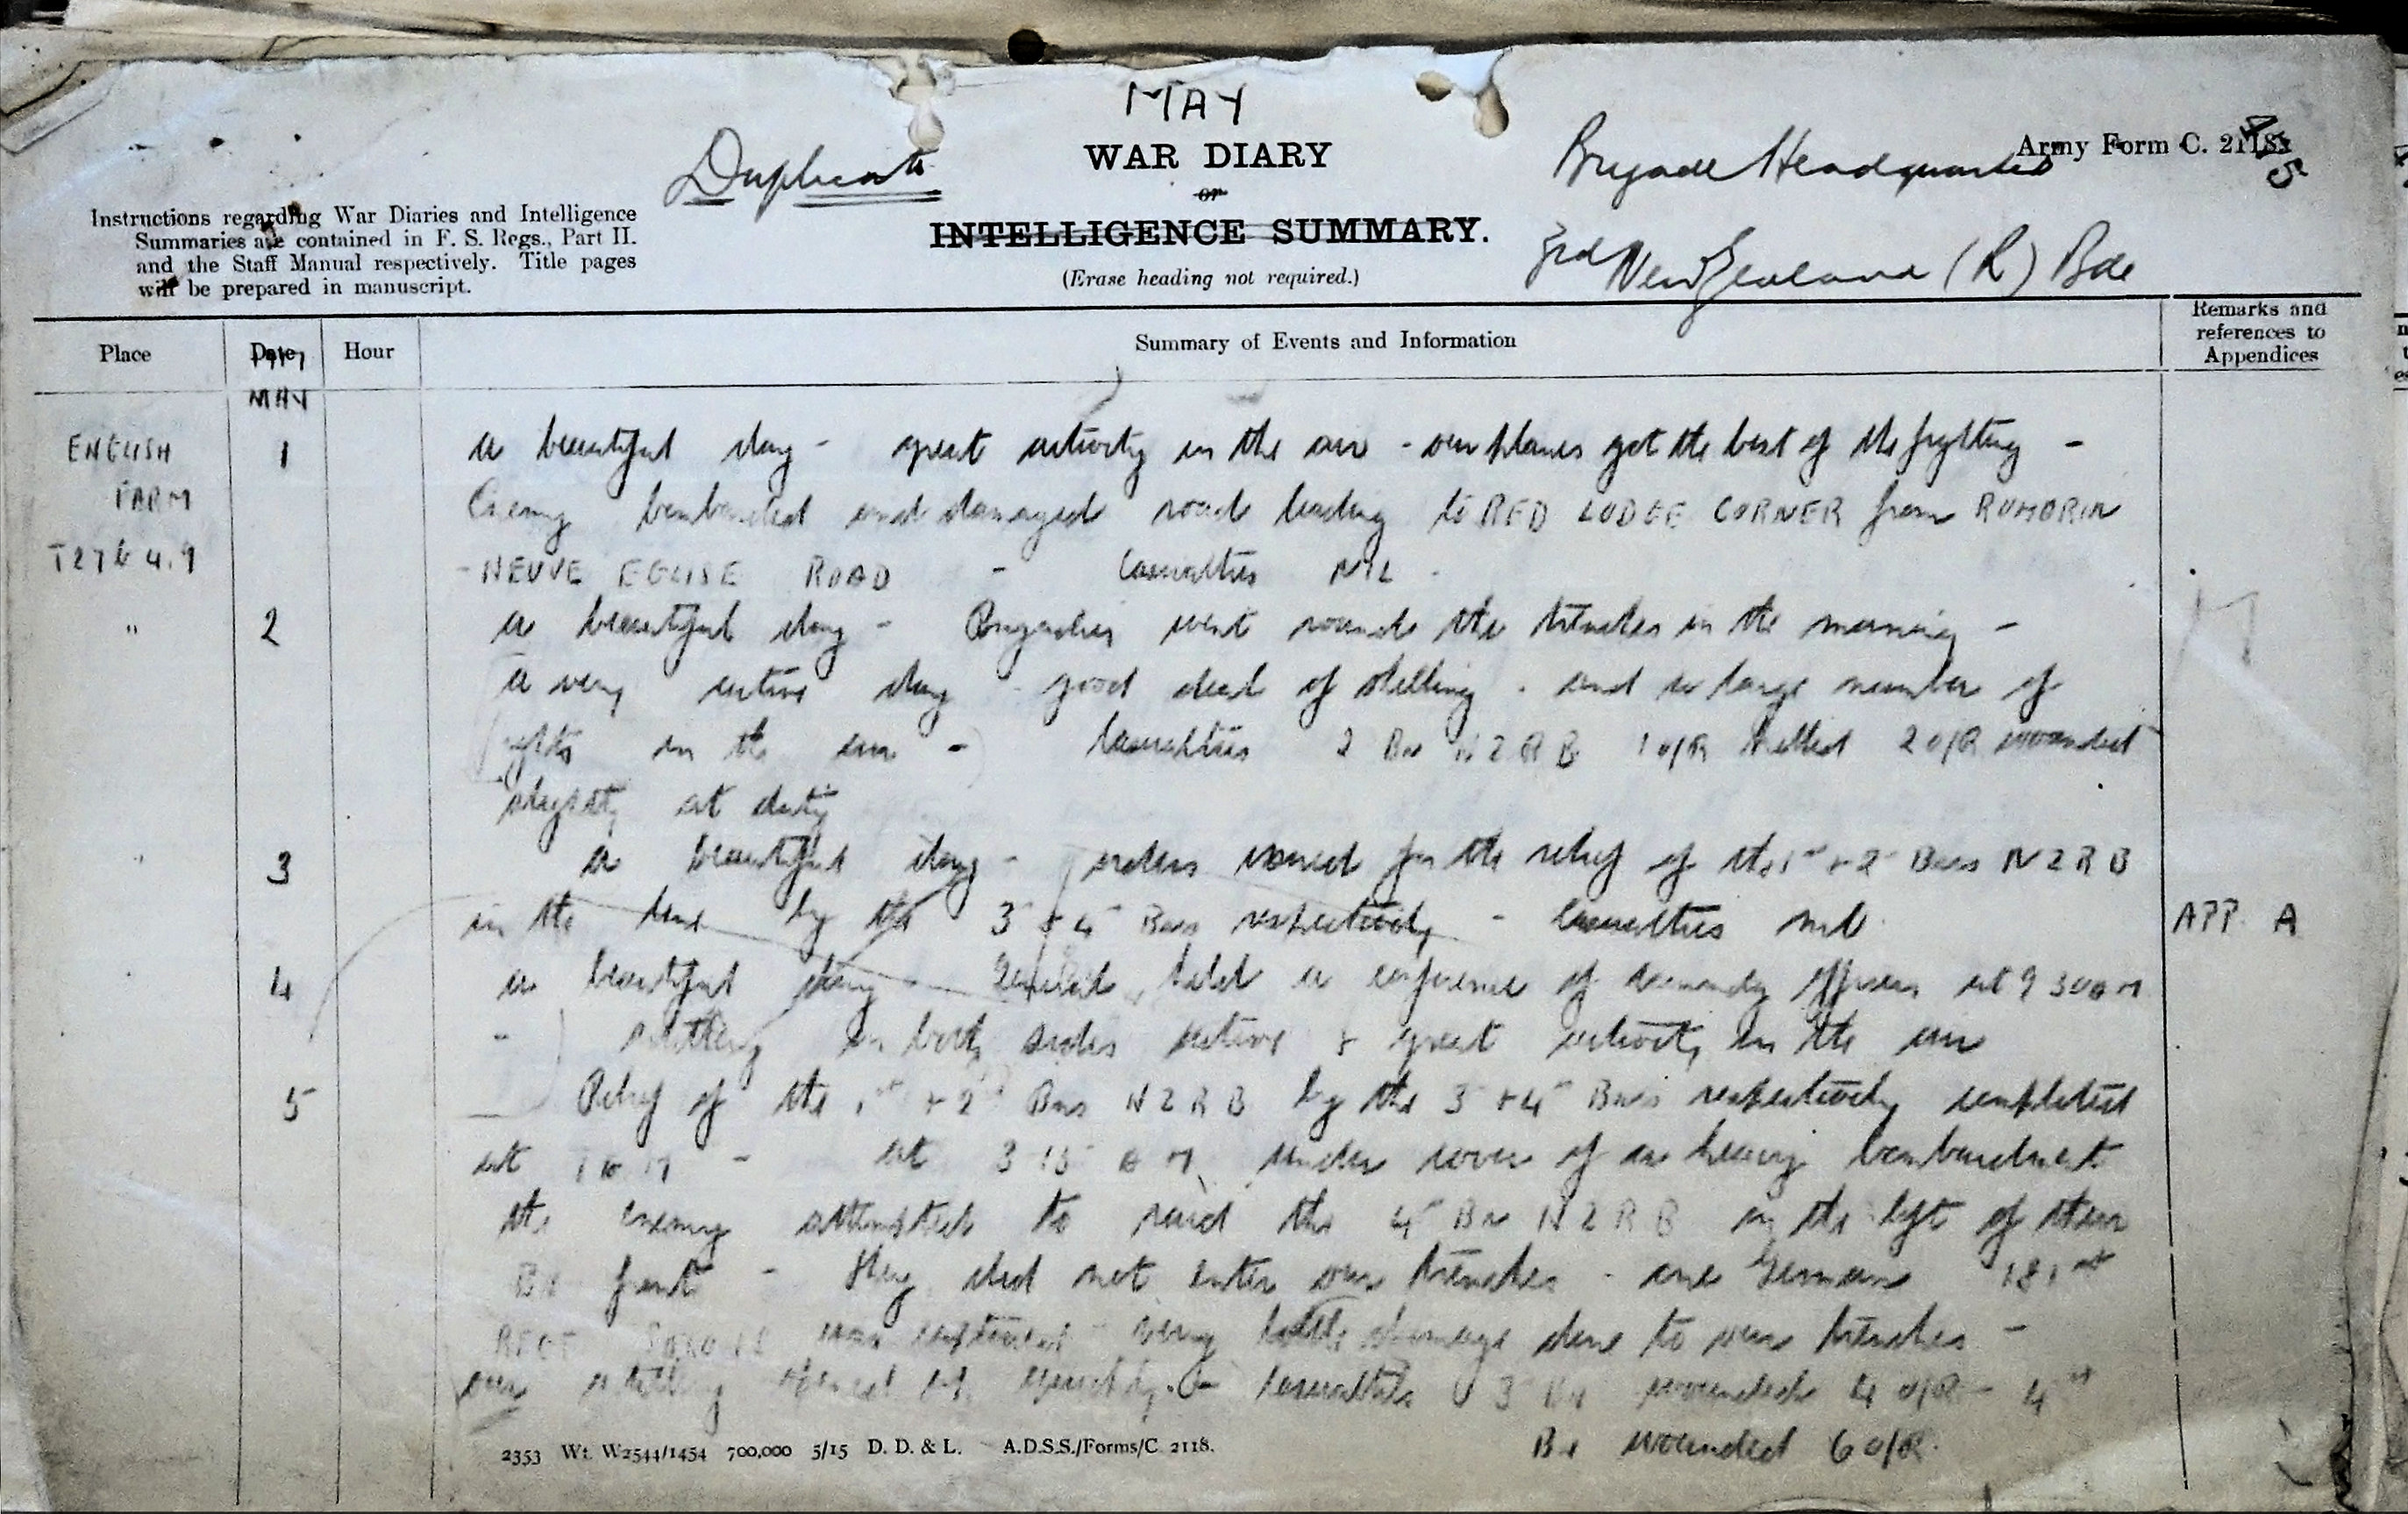 MAY
Duplicate
WAR DIARY
or
INTELLIGENCE SUMMARY.
(Erase heading not required.)
Brigade Headquarters
3rd New Zealand (R) Bde
Army Form C. 2118.
Instructions regarding War Diaries and Intelligence
Summaries are contained in F. S. Regs., Part II.
and the Staff Manual respectively. Title pages
will be prepared in manuscript.
Place Date Hour Summary of Events and Information Remarks and
references to
Appendices
MAY
ENGLISH 1 a beautiful day - great activity in the air - our planes got the best of the fighting -
FARM Enemy bombarded and damaged road leading to RED LODGE CORNER from ROMARIN
T27b 4.9 - NEUVE EGLISE ROAD - Casualties NIL -
" 2 a beautiful day - Brigadier went round the trenches in the morning -
a very active day - good deal of shelling - and a large number of
fights in the air - Casualties 2 Bn NZRB 1 O/R killed 2 O/R wounded
slightly at duty
" 3 a beautiful day - orders issued for the relief of the 1st + 2 Bns NZRB
in the line by the 3 + 4 Bns respectively - Casualties nil APP. A
4 a beautiful day - held a conference of officers at 9 30 AM
- artillery on both sides active & great activity in the air
5 Relief of the 1st + 2nd Bns NZRB by the 3 + 4 Bns respectively completed
at - at 3 15 AM under cover of a heavy bombardment
the enemy attempted to raid the 4 Bn NZRB on the left of their
Bn front - they did not enter our trenches - one German 181st
REGT was captured - very little damage done to our trenches -
our artillery opened up quickly - Casualties 3 Bn wounded 4 O/R - 4th
Bn wounded 6 O/R.
2353 Wt. W2544/1454 700,000 5/15 D. D. & L. A.D.S.S./Forms/C. 2118.